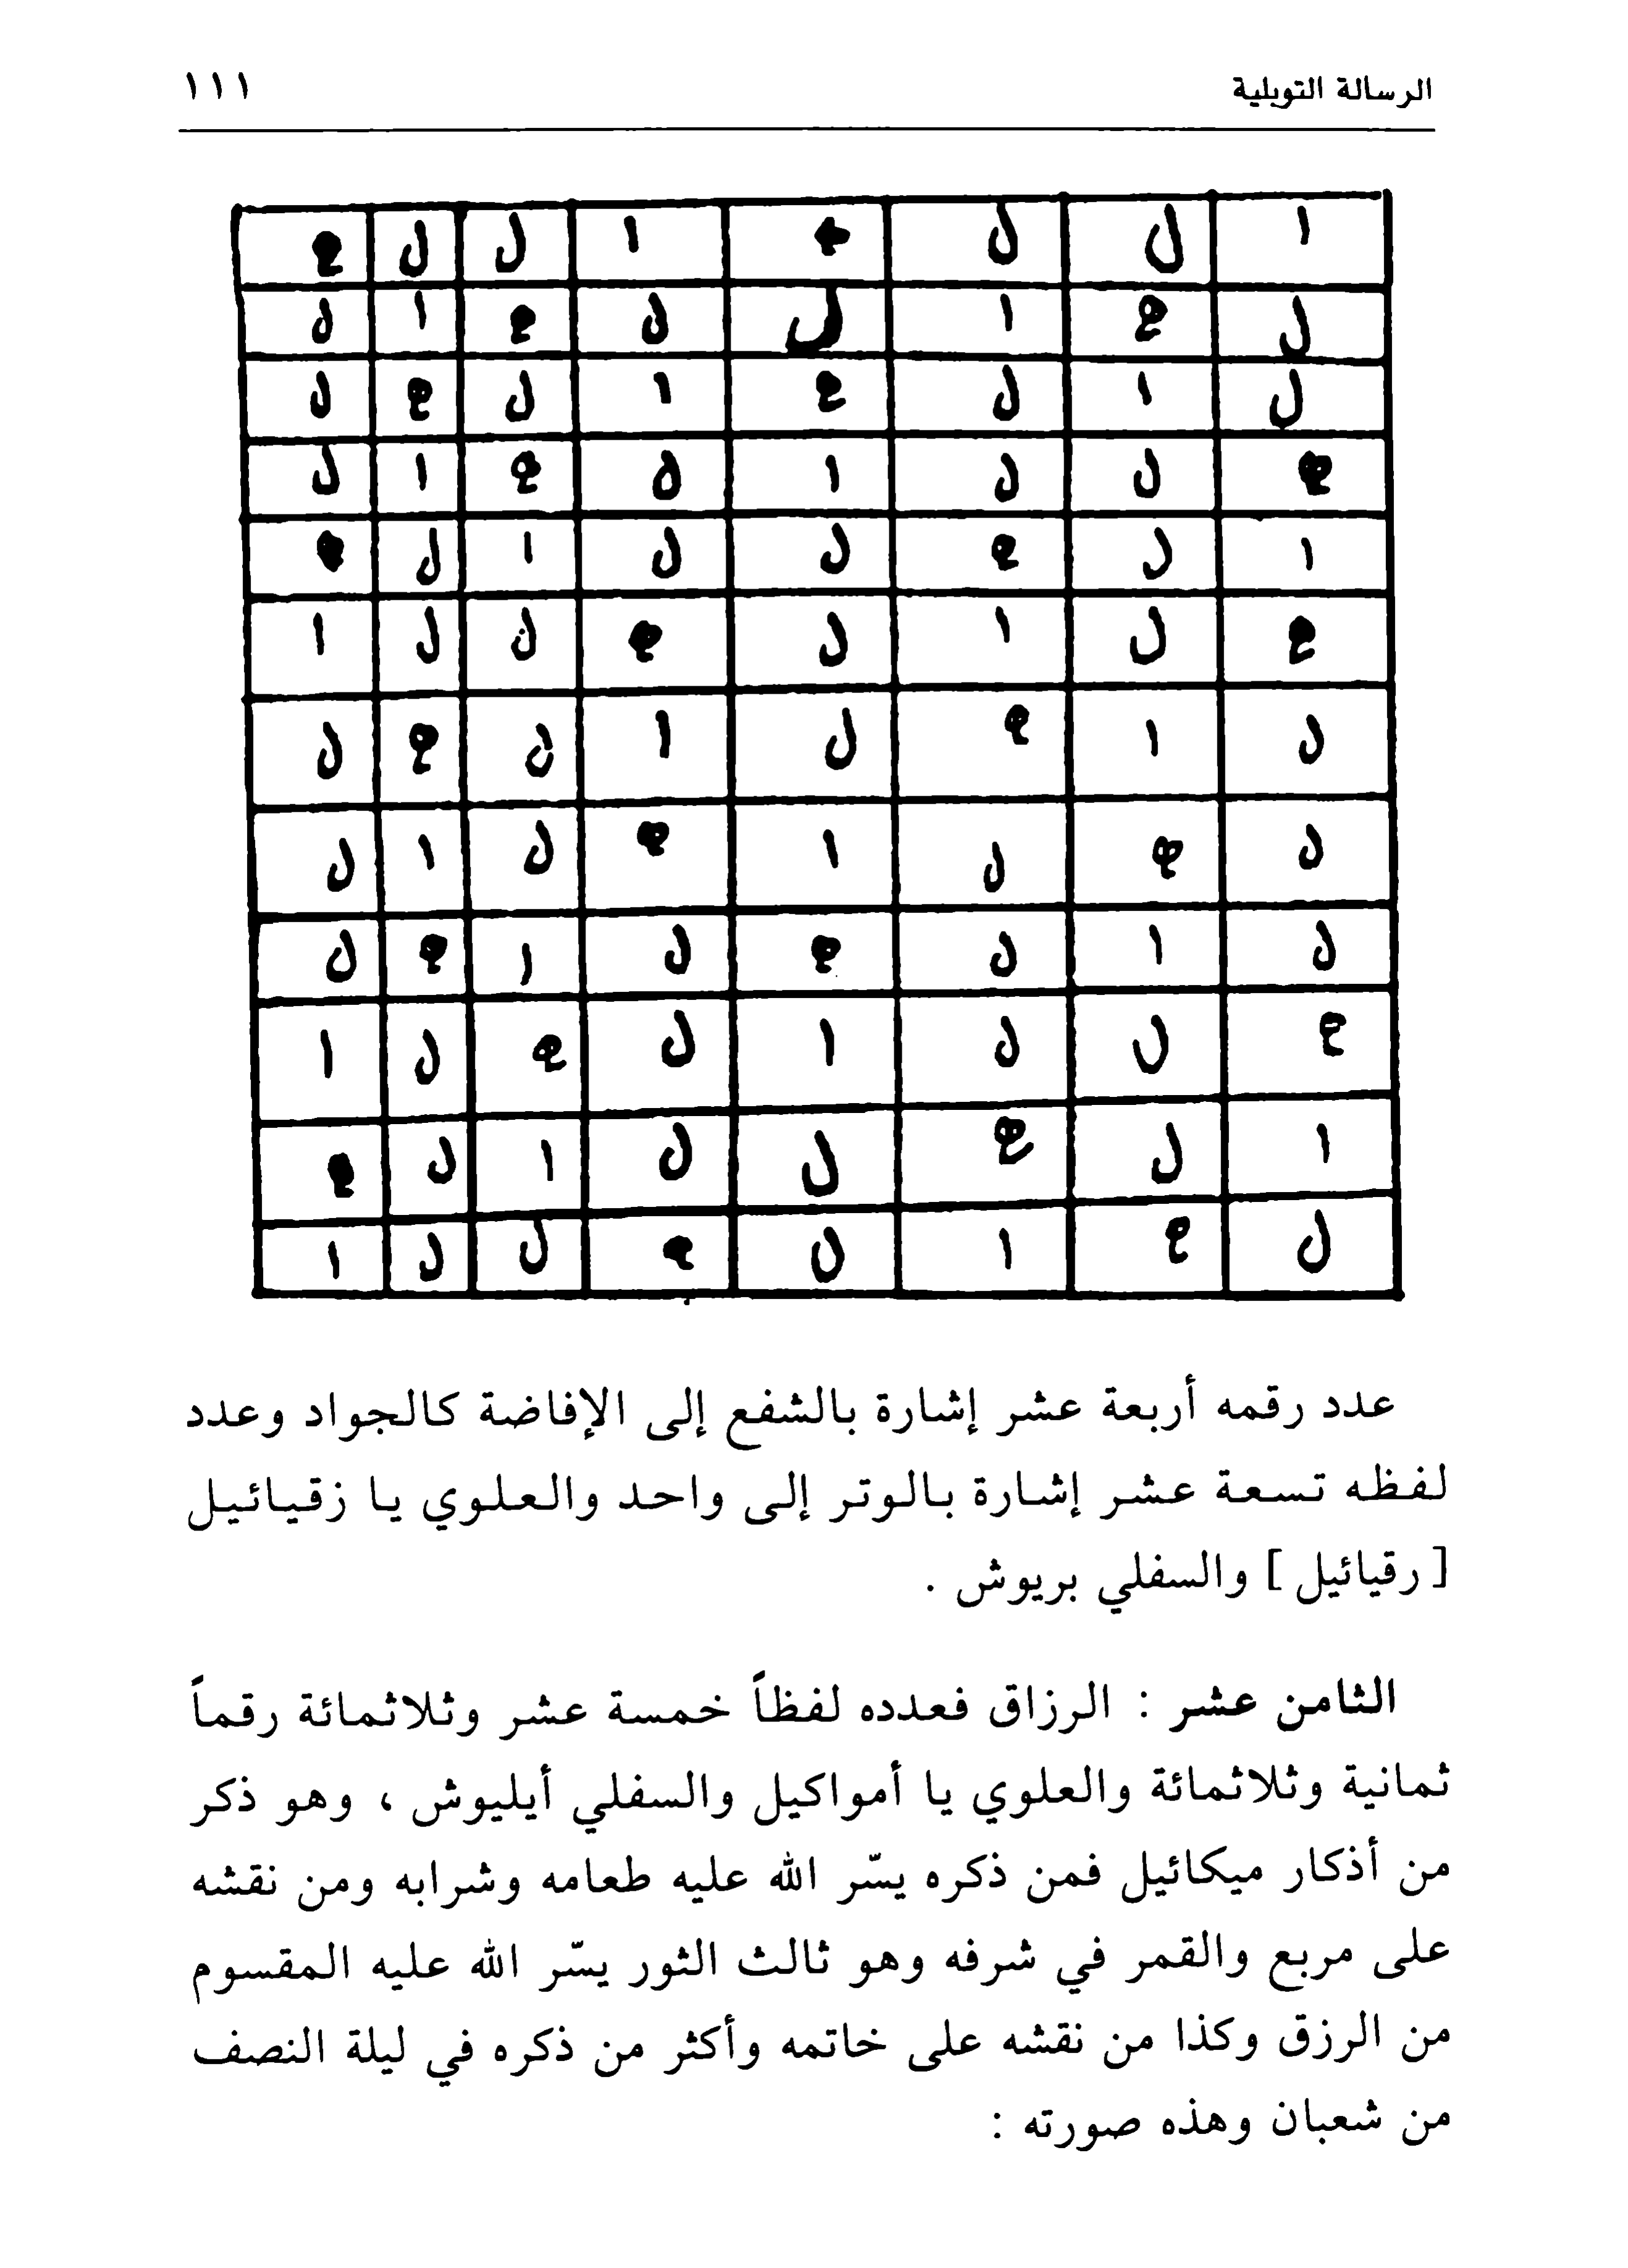 الرسالة التوبلية ١١١
ا ل ل ه ا ل ل ه
ل ه ا ل ل ه ا ل
ل ا ل ه ا ل ه ل
ه ل ل ا ل ه ا ل
ا ل ه ل ل ا ل ه
ه ل ا ل ه ل ل ا
ل ا ه ل ا ل ه ل
ل ه ل ا ه ل ا ل
ل ا ل ه ل ا ه ل
ه ل ل ا ل ه ل ا
ا ل ه ل ل ا ل ه
ل ه ا ل ه ل ل ا
عدد رقمه أربعة عشر إشارة بالشفع إلى الإفاضة كالجواد وعدد
لفظه تسعة عشر إشارة بالوتر إلى واحد والعلوي يا زقيائيل
[ رقيائيل ] والسفلي بريوش .
الثامن عشر : الرزاق فعدده لفظاً خمسة عشر وثلاثمائة رقماً
ثمانية وثلاثمائة والعلوي يا أمواكيل والسفلي أيليوش ، وهو ذكر
من أذكار ميكائيل فمن ذكره يسّر الله عليه طعامه وشرابه ومن نقشه
على مربع والقمر في شرفه وهو ثالث الثور يسّر الله عليه المقسوم
من الرزق وكذا من نقشه على خاتمه وأكثر من ذكره في ليلة النصف
من شعبان وهذه صورته :